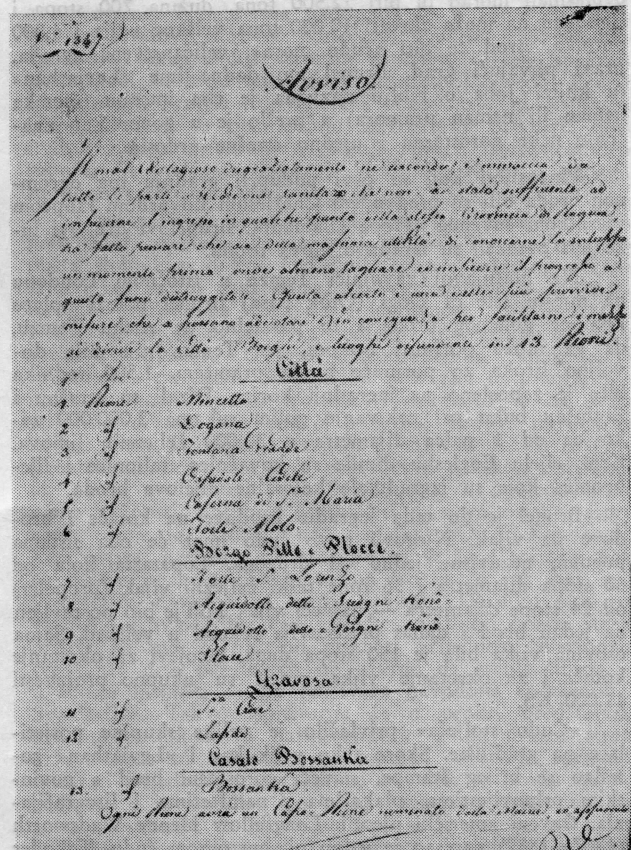 N. 1347
Avviso
Il mal contagioso disgraziatamente ne circonda, e minaccia da
tutte le parti. Il Cordone sanitario che non è stato sufficiente ad
impedirne l'ingresso in qualche punto della stessa Provincia di Ragusa,
ha fatto pensare che sia della massima utilità di conoscerne lo sviluppo
un momento prima, onde almeno tagliare ed impedire il progresso a
questo fuoco distruggitore. Questa allerta è una delle più provvide
misure, che si possano adottare, ed in conseguenza per facilitarne i mezzi
si divide la Città, Borghi, e luoghi in 13 Rioni.
Città
1 Rione Mincetta
2 id Dogana
3 id Fontana Grande
4 id Ospedale Civile
5 id Caserma di S.ta Maria
6 id Forte Molo
Borgo Pille e Plocce.
7 id Forte S. Lorenzo
8 id Acquidotto delle
9 id Acquidotto delle
10 id Place
Gravosa
11 id S.ta Croce
12 id Lapide
Casale Bossanka
13. id Bossanka
Ogni Rione avrà un Capo-Rione nominato dalla Mairie, ed approvato